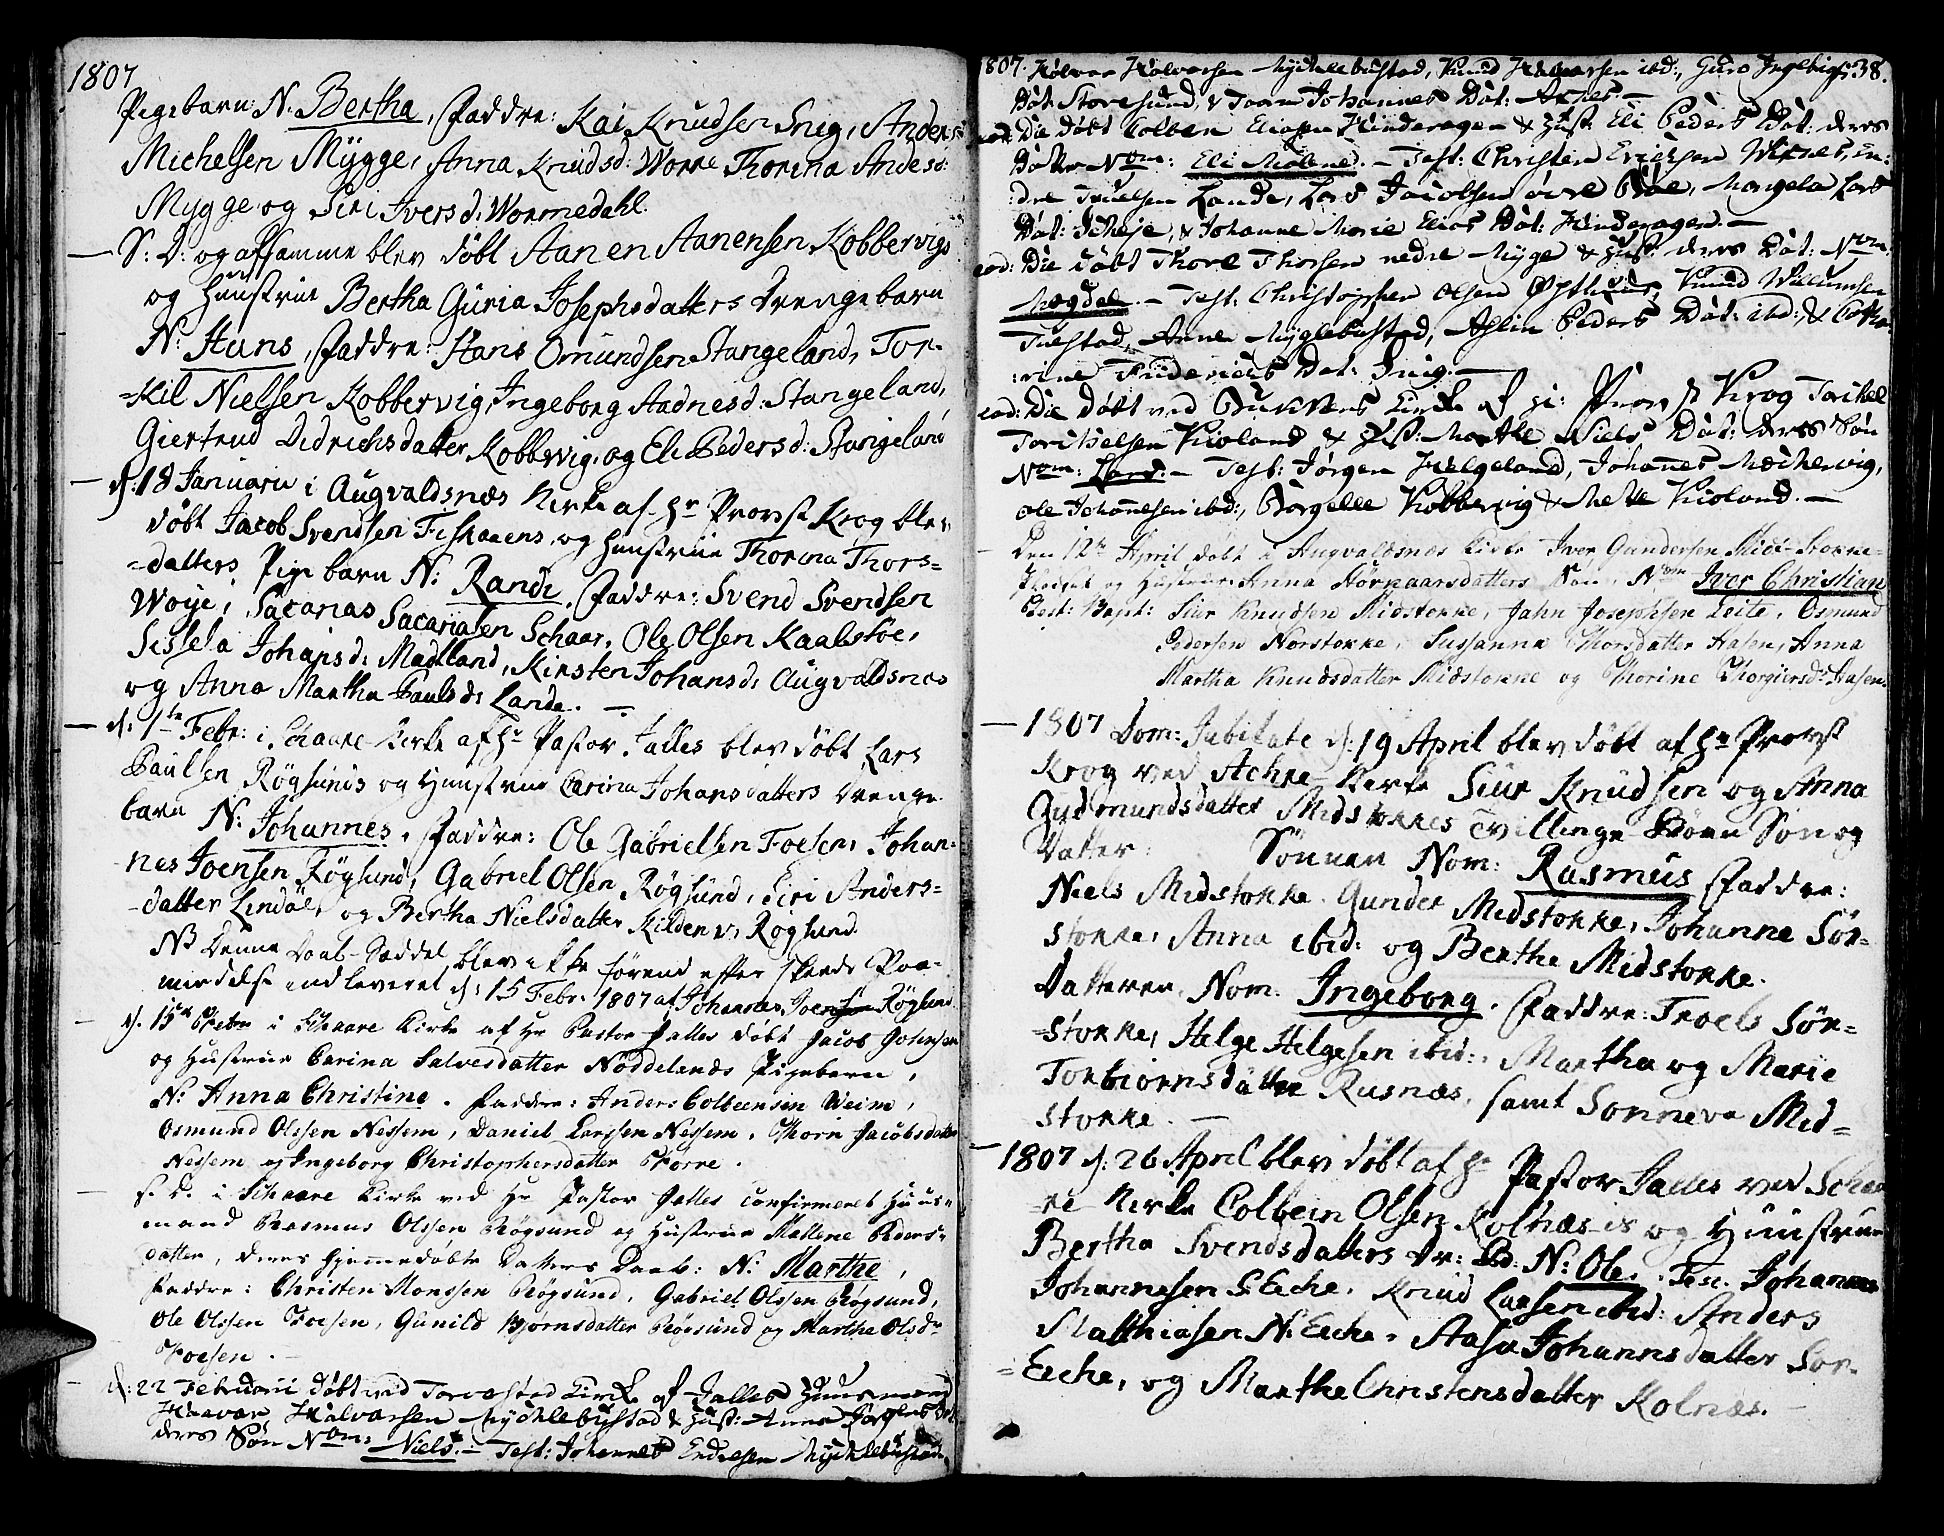 1807
Pigebarn: N. Bertha, Faddre: Kai Knudsen Snig, Anders
Michelsen Mÿgge, Anna Knudsd: Worre Thorina Andesd:
Mygge og Siri Iversd: Wormedahl.
S: D: og afsamme blev døbt Aanen Aanensen Kobbervigs
og Huustrue Bertha Guria Josephsdatters Drengebarn
N: Hans, Faddre: Hans Omundsen Stangeland, Tor-
=kil Nielsen Kobbervig, Ingeborg Aadnesd: Stangeland,
Giertrud Didrichsdatter Kobbvig, og Eli Pedersd: Stangeland
d: 18 Januarii i Augvaldsnæs Kirke af Hr Provst Krog blev
døbt Jacob Svendsen Fiskaaens, og Huustrue Thorina Thors=
=datters Pige barn N: Randi, Faddre: Svend Svendsen
Woje, Sacarias Sacariasen Schaar, Ole Olsen Kaalstøe,
Sissela Johansd: Madland, Kirsten Johansd: Augvaldsnæs
og Anna Martha Paulsd: Lande.
d: 1te Febr: i Schaare Kirke af Hr Pastor Jalles blev døbt Lars
Paulsen Røgsunds og Huustrue Carina Johansdatters Drenge
barn N: Johannes, Faddre: Ole Gabrielsen Foesen, Johan-
nes Joensen Røgsund, Gabriel Olsen Røgsund, Siri Anders=
-datter Lindøe, og Bertha Nielsdatter Kilden v: Røgsund.
NB Denne Daab-Seddel blev ikke førend efter skeede Paa-
mindelse indleveret d: 15 Febr. 1807 af Johannes Joensen Røgsund.
d. 15de Febr i Schaare Kirke af Hr Pastor Jalles døbt Jacob Johnsen
og Hustrue Carina Salvesdatter Nøddelands Pigebarn,
N: Anna Christine. Faddre: Anders Colbeensen Weim,
Osmund Olssen Nessem, Daniel Larssen Nessem, Thorn Jacobsdatter
Nessem og Ingeborg Christophersdatter
S. D. i Schaare Kirke ved Hr Pastor Jalles confirmeret Huus=
mand Rasmus Olssen Røgsund og Hustrue Mallene Peders=
datter, deres hjemmedøbte Datters Daab: N: Marthe,
Faddre: Christen Monssen Røgsund, Gabriel Olssen Røgsund,
Ole Olssen Foesen, Gunild Bjørnsdatter Røgsund og Marthe Olsdr
Foesen.
d: 22 Februarii døbt ved Torvestad Kirke af Jalles Huusmand
Halvor Halvorsen Mychlebustad & Hust: Anne
deres Søn Nom: Niels. - Test: Johannes Endresen Mychlebustad
1807. Halvor Halvorsen Mychlebustad, Knud Halvorsen ibid:, Guro Ingebrigts 38.
Dat: Storesund, & Taarn Johannes Dat:
eod: Die døbt Colben Eliasen Hinderagen & Hust: Eli Peders Dat: deres
Datter Nom: Eli Malene. - Test: Christen Erichsen Wixnes, En:
:dre Truelsen Lande, Lars Jacobsen øvre Bøe, Mangela Lars
Dat: Scheje, & Johanne Marie Elias Dat: Hinderagen. -
eod: Die døbt Thore Thorsen nedre Myge & Hust: deres Dat: Nom:
Magdel. - Test: Christopher Olsen Østhuus, Knud Willumsen
Tuestad, Anne Myglebustad, Aslin Peders Dat: ibid:, & Catha
:rine Friderichs Dat: Snig. -
eod: Die døbt ved Bukkens Kirke af Hr: Provst Krog Torkel
Torkelsen Kioland & Hust: Marthe Niels Dat: deres Søn
Nom: Lars. - Test: Jørgen Helgeland, Johannes Mæchervig,
Ole Johannesen ibid:, Børgelle Kobbervig & Mette Kioland. -
Den 12te April døbt i Augvaldsnæs Kirke Iver Gundersen Mid-Stokke-
Pladset og Hustrue Anna Hörnaarsdatters Søn, Nom Iver Christian
Test: Bapt: Siur Knudsen Midstokke, Jahn Josephsen Leite, Osmund
Pedersen Norstokke, Sussanna Thorsdatter Hasen, Anna
Martha Knudsdatter Midstokke og Thorine Thorgiersdr Hasen.
1807 Dom: Jubilate d: 19 April blev døbt af Hr Provst
Krog ved Achre Kirke Siur Knudsen og Anna
Gudmundsdatter Midstokkes Tvillinge Børn Søn og
Datter: Sønnen Nom: Rasmus Faddre:
Niels Midstokke. Gunder Midstokke, Johanne Sør-
stokke, Anna ibid: og Berthe Midstokke.
Datteren, Nom. Ingeborg. Faddre: Troels Sør=
=stokke, Helge Helgesen ibid:, Martha og Marie
Torbiornsdatter Rusnæs, samt Sonneva Mid=
stokke. -
1807 d: 26 April blev døbt af Hr Pastor Jalles ved Schaa
re Kirke Colbein Olsen Kolnæsis og Huustrue
Bertha Svendsdatters Dr: Bd: N: Ole, Test. Johannes
Johannesen S Eiche, Knud Larsen ibid: Anders
Matthiasen N: Eiche, Aasa Johannsdatter Sør-
=Eiche, og Marthe Christensdatter Kolnæs.